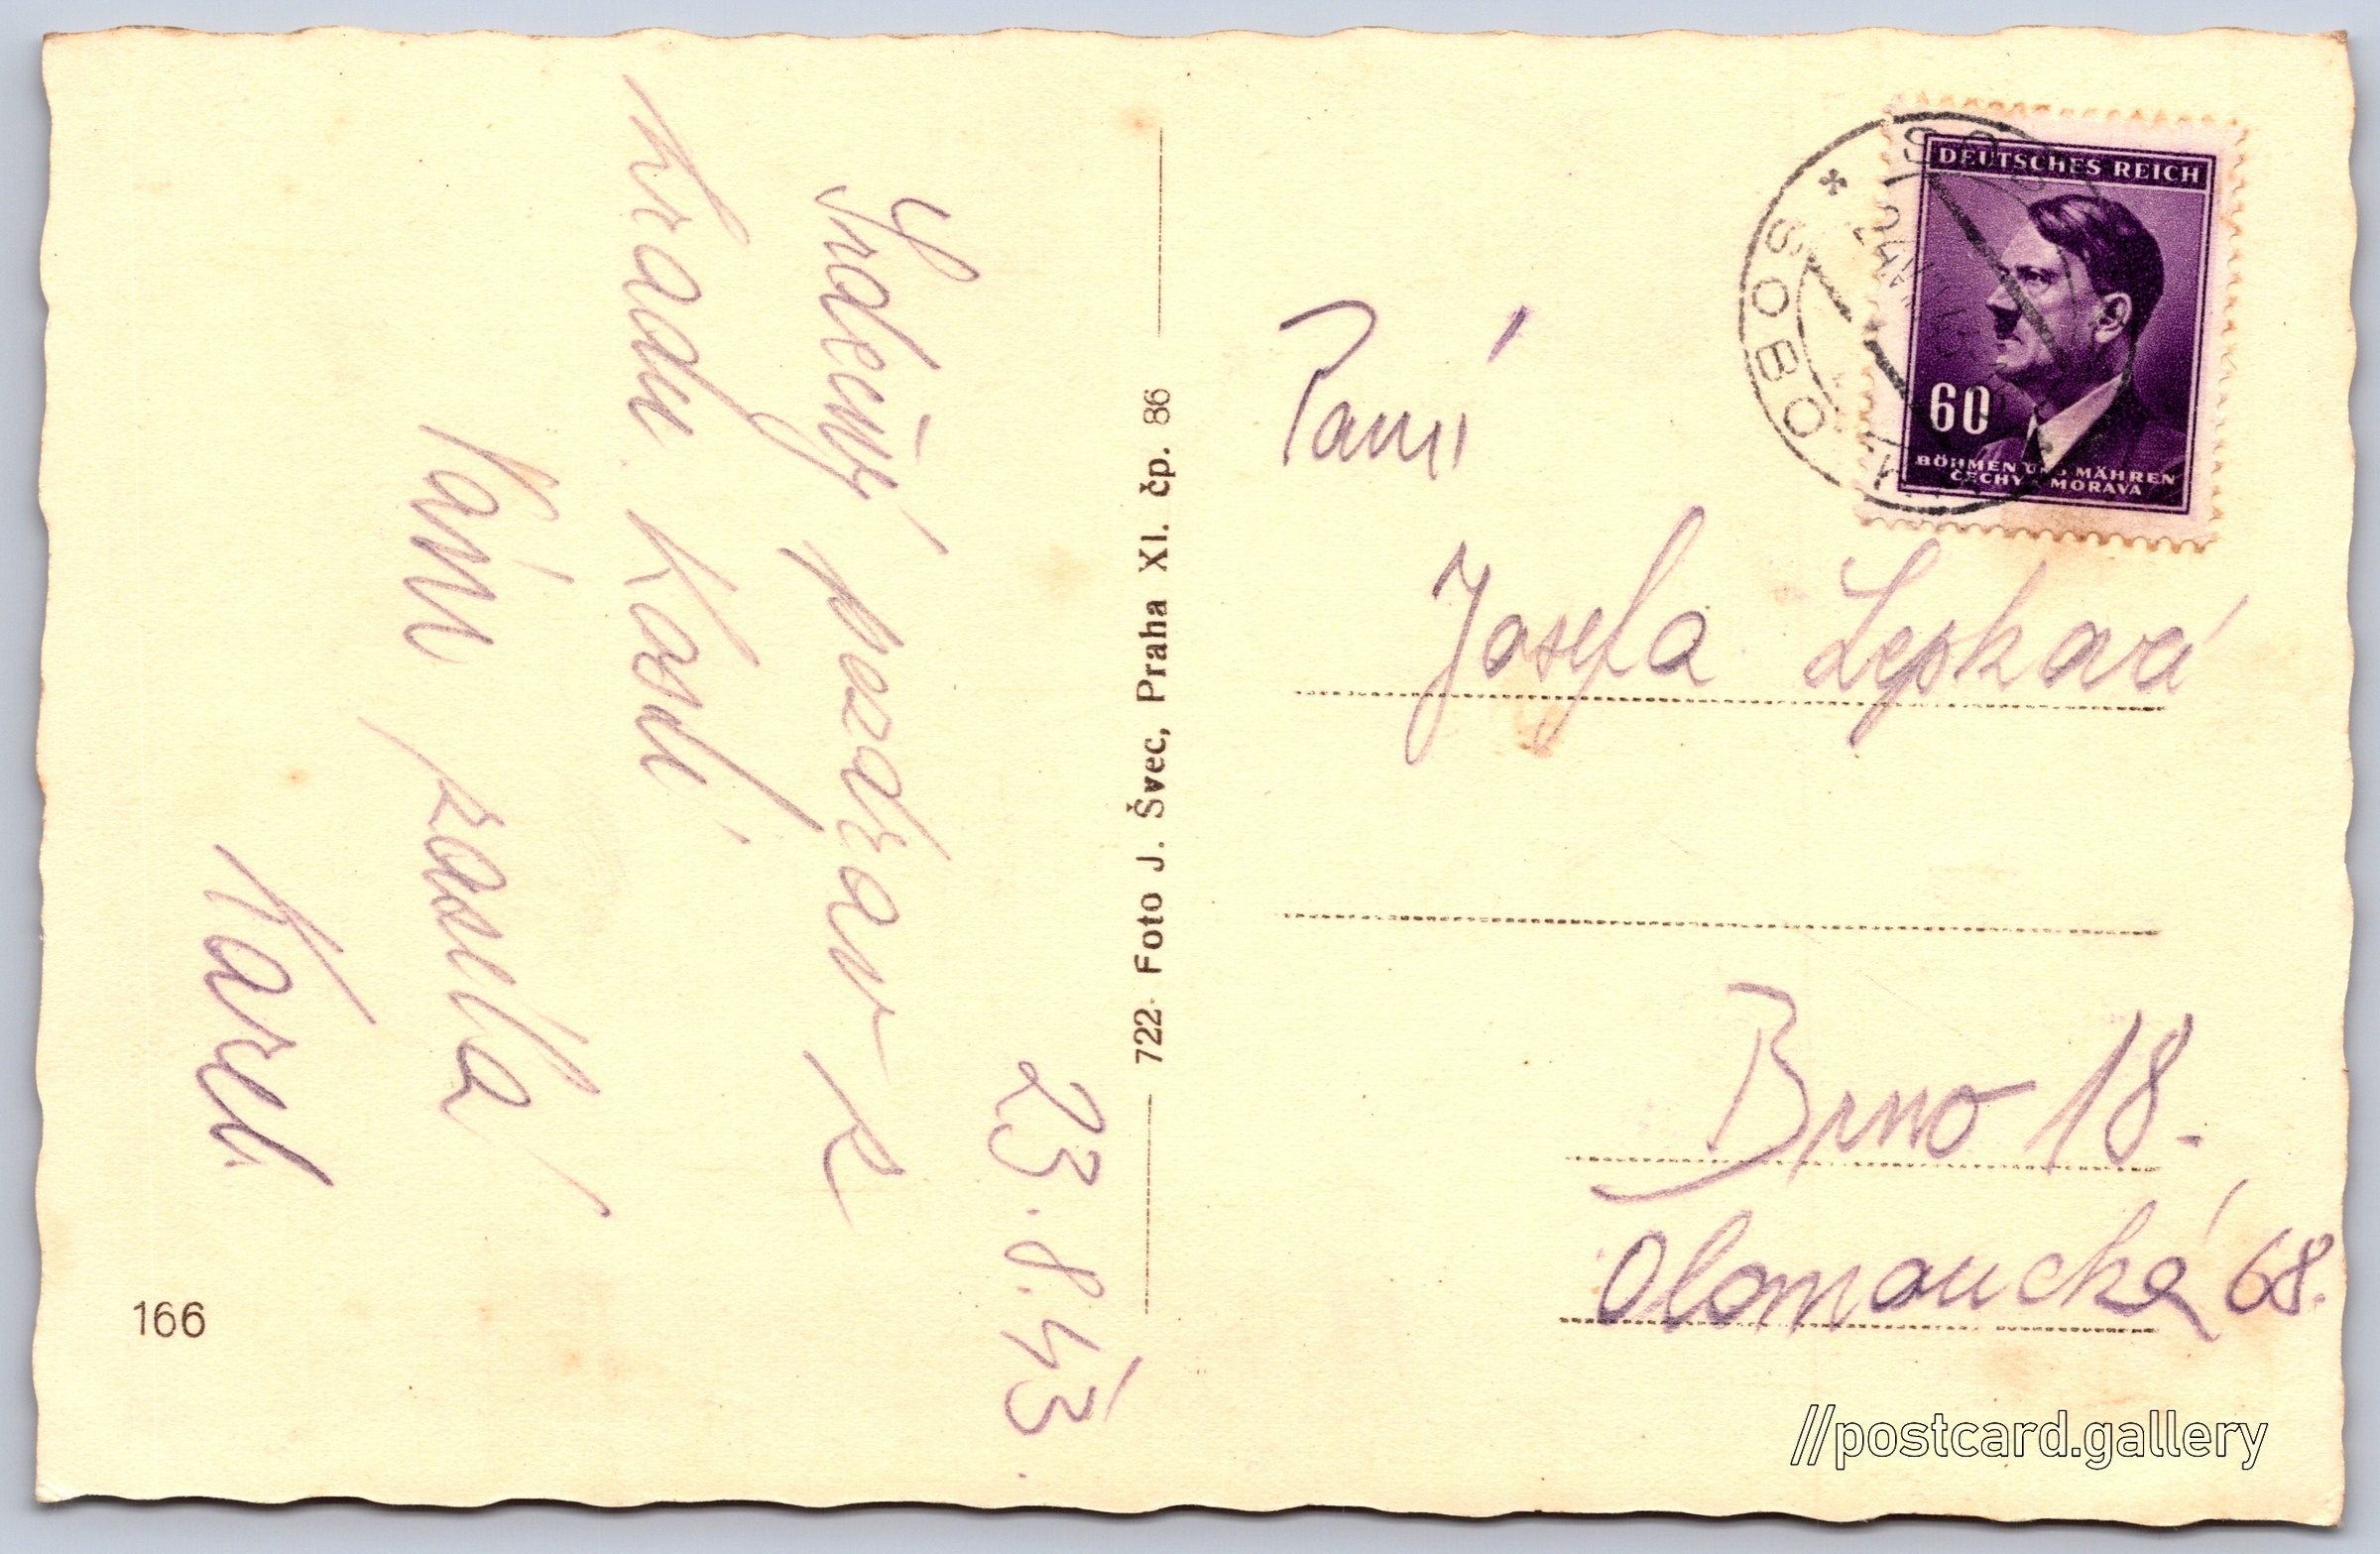 23.8.43.
Srdečný pozdrav z
hradu Kosti
Vám posílá
Karel
166
722 Foto J. Švec, Praha XI. čp. 86
DEUTSCHES REICH
60
BÖHMEN UND MÄHREN
ČECHY MORAVA
SOBO
Paní
Josefa Lepková
Brno 18.
Olomoucká 68.
//postcard.gallery